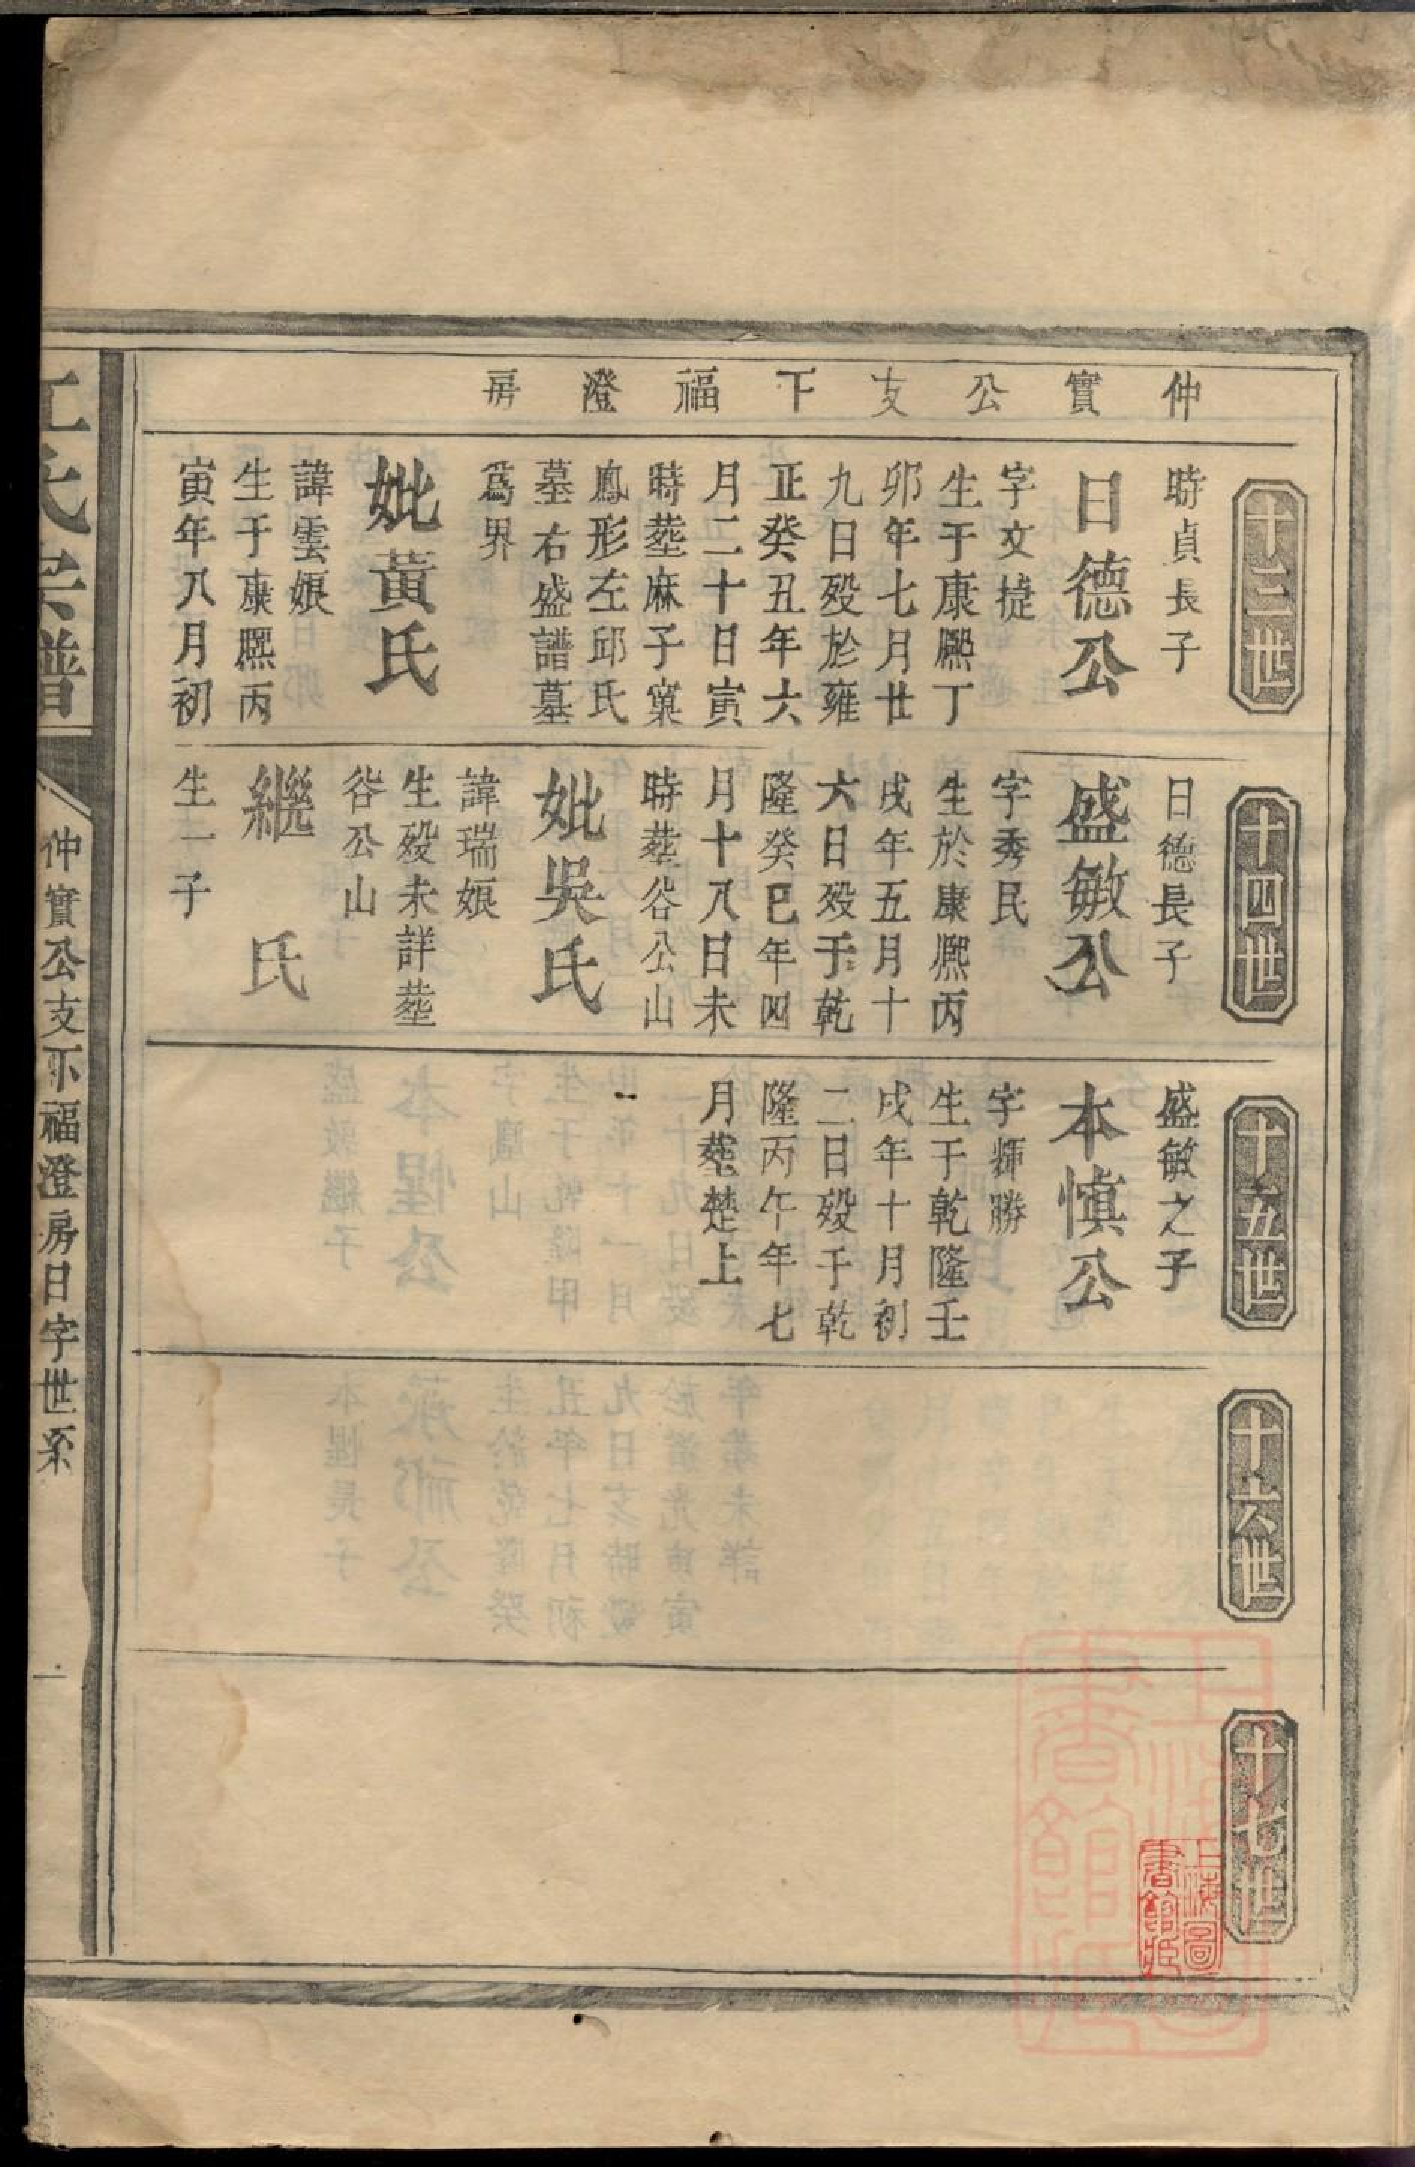 仲實公支下福澄房
十三世
時貞長子
日德公
字文捷
生于康熈丁
卯年七月廿
九日歿於雍
正癸丑年六
月二十日寅
時塟麻子窠
鳳形左邱氏
墓右盛譜墓
爲界
妣黃氏
諱雲娘
生于康熈丙
寅年八月初
十四世
日德長子
盛敏公
字秀民
生於康熈丙
戌年五月十
六日歿于乾
隆癸巳年四
月十八日未
時塟谷公山
妣吳氏
諱瑞娘
生歿未詳塟
谷公山
繼 氏
生一子
十五世
盛敏之子
本愼公
字輝勝
生于乾隆壬
戌年十月初
二日歿于乾
隆丙午年七
月塟楚上
十六世
十七世
氏宗譜
仲實公支下福澄房日字世系
一
上海圖書館藏